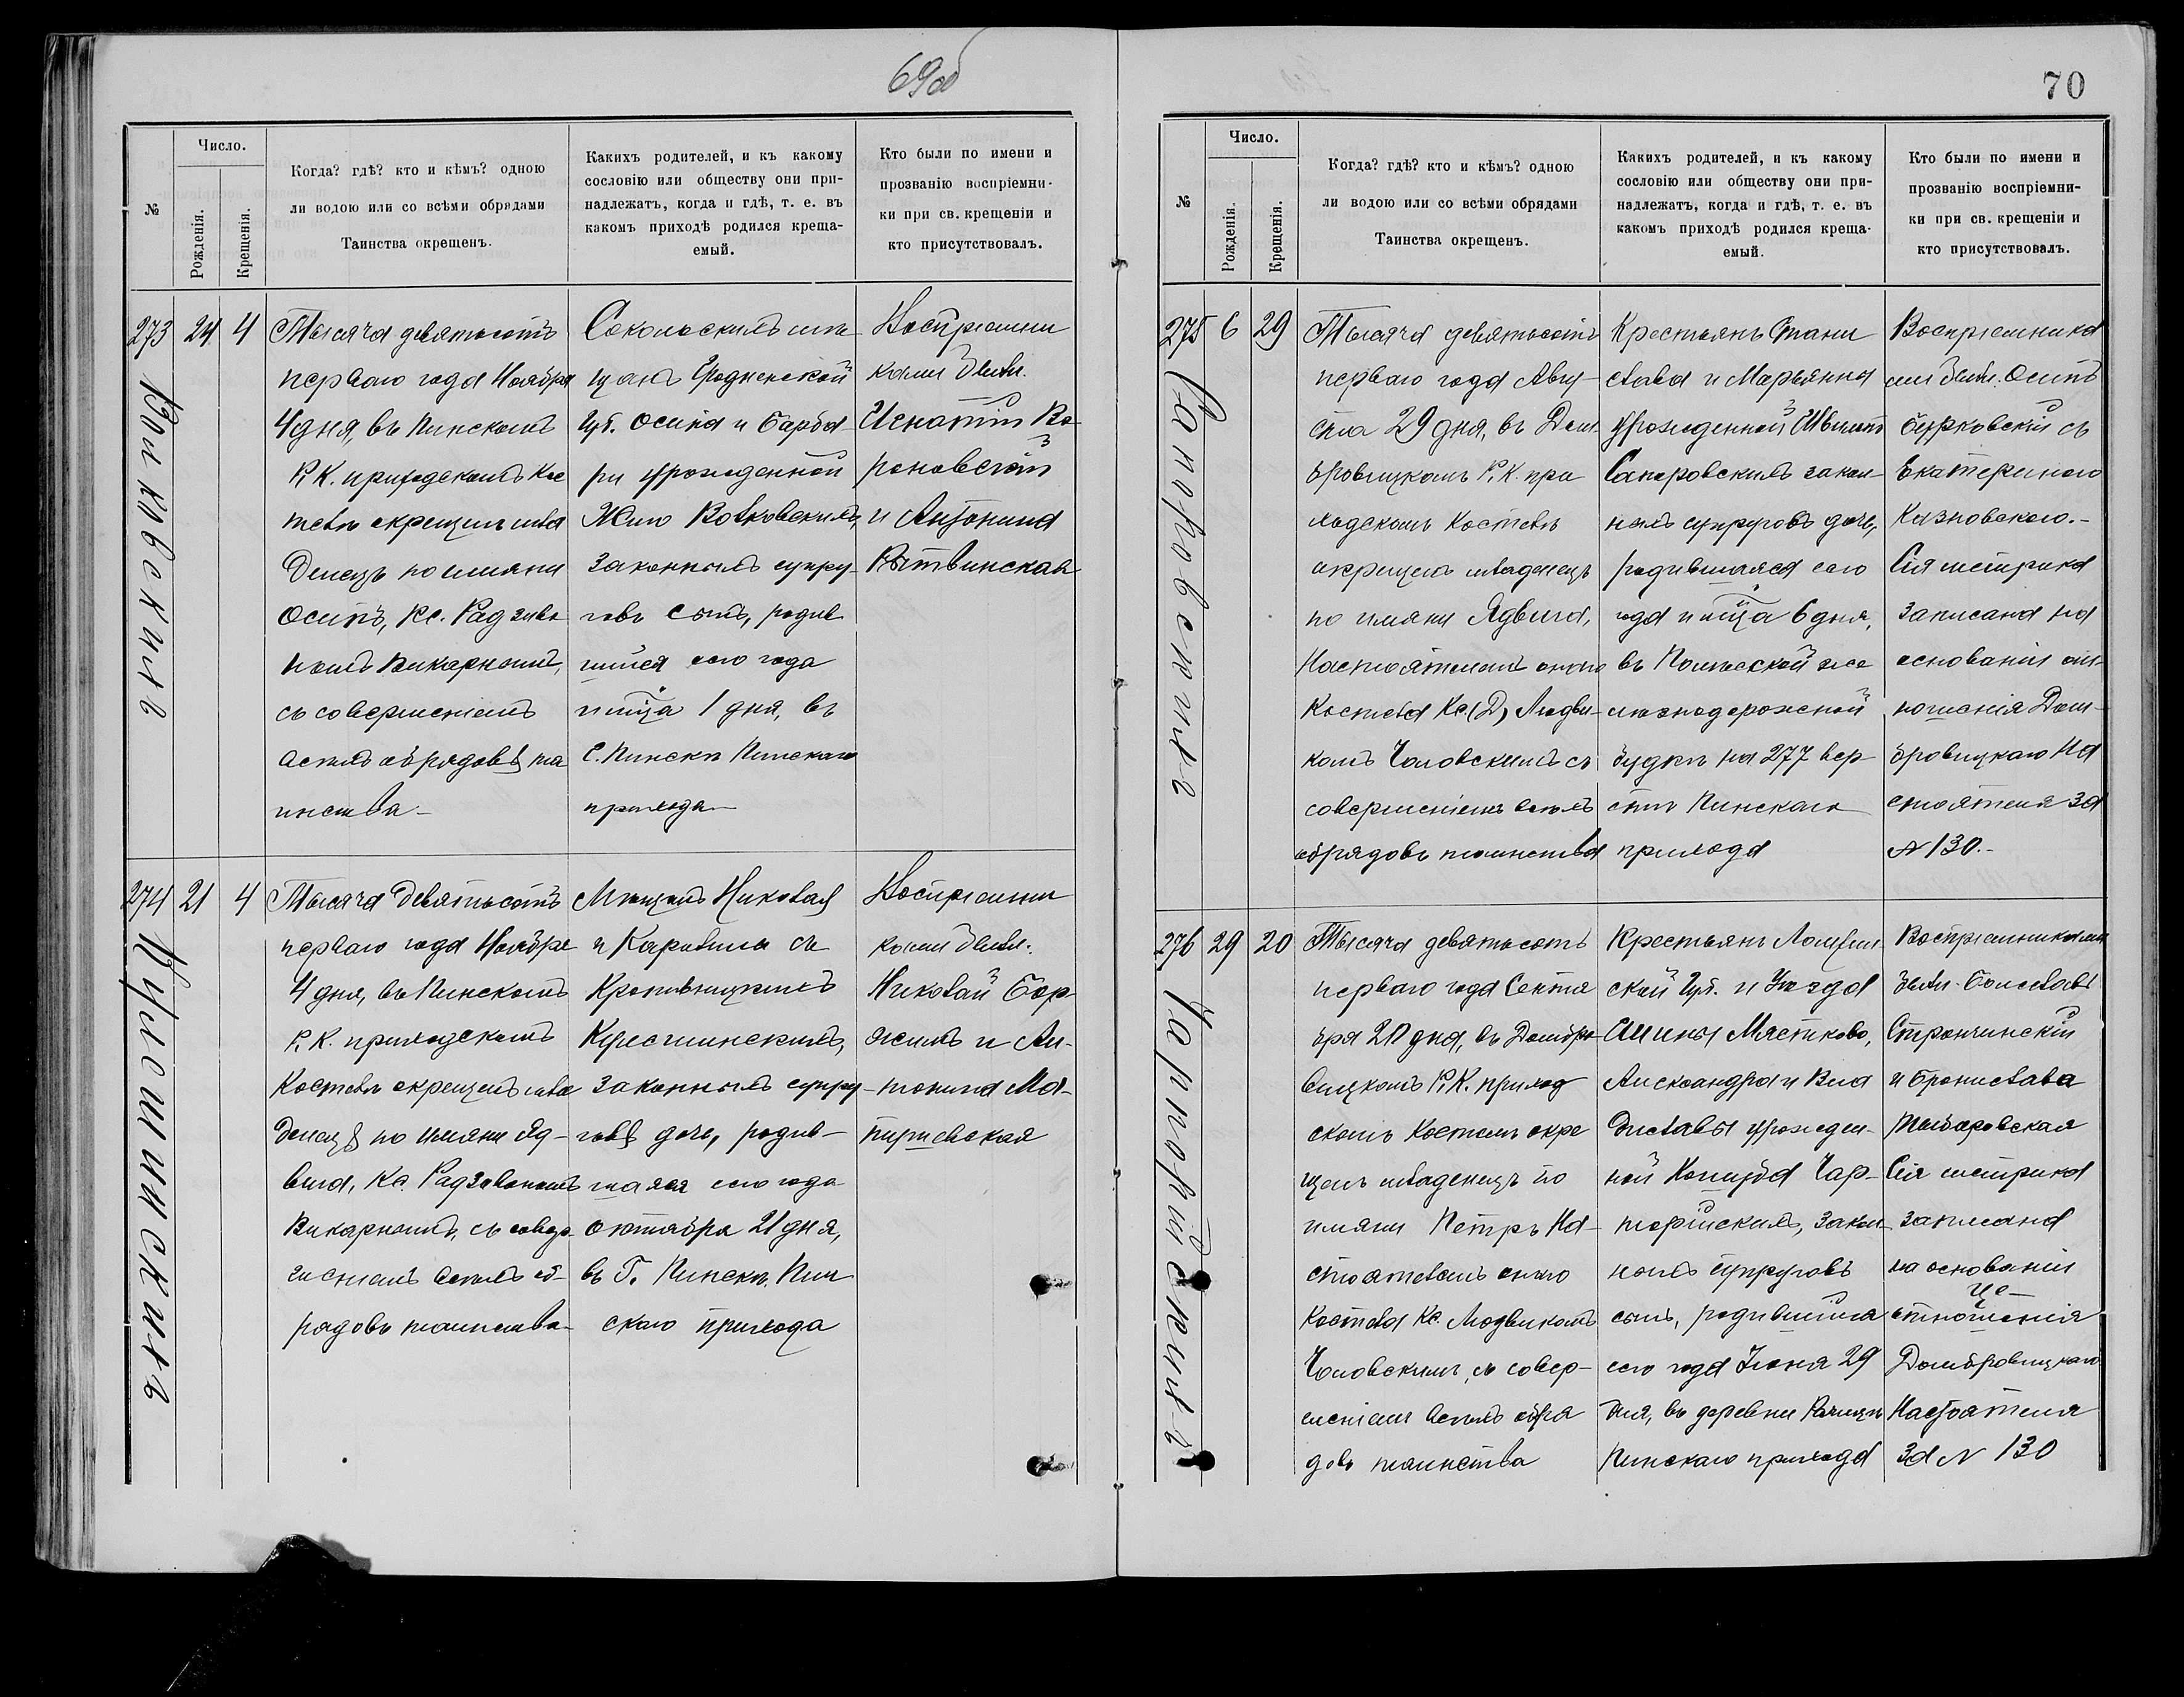 69об
№
Число.
Рожденія.
Крещенія.
Когда? гдѣ? кто и кѣмъ? одною
ли водою или со всѣми обрядами
Таинства окрещенъ.
Какихъ родителей, и къ какому
сословію или обществу они при-
надлежатъ, когда и гдѣ, т. е. въ
какомъ приходѣ родился креща-
емый.
Кто были по имени и
прозванію воспріемни-
ки при св. крещеніи и
кто присутствовалъ.
273
24
4
Тысяча девятьсотъ
перваго года Ноября
4 дня, въ Пинскомъ
Р. К. приходскомъ Кос
телѣ окрещенъ мла
денецъ по имяни
Осипъ, Кс.
Викарнымъ,
съ совершеніемъ
всѣхъ обрядовъ та
инства-
Сокольскихъ мѣ
щанъ Гродненской
Губ. Осипа и Барба-
ры урожденной
законныхъ супру-
говъ сынъ, родив
шійся сего года
мѣсяца 1 дня, въ
Г. Пинскѣ Пинскаго
прихода-
Воспріемни
ками были.
Игнатій Во-
роновскій
и Антонина
274
21
4
Кулешинскихъ
Тысяча Девятьсотъ
перваго года Ноября
4 дня, въ Пинскомъ
Р. К. приходскомъ
Костелѣ окрещенъ мла
денецъ по имяни Яд-
вига, Кс.
Викарнымъ, съ совер-
шеніемъ всѣхъ об-
рядовъ таинства-
Мѣщанъ Николая
и Каролины съ
Кропивницкихъ
Кулешинскихъ,
законныхъ супру-
говъ дочь, родив-
шаяся сего года
октября 21 дня,
въ Г. Пинскѣ, Пин
скаго прихода
Воспріемни
ками были:
Николай Бор-
и Ан-
тонина
70
№
Число.
Рожденія.
Крещенія.
Когда? гдѣ? кто и кѣмъ? одною
ли водою или со всѣми обрядами
Таинства окрещенъ.
Какихъ родителей, и къ какому
сословію или обществу они при-
надлежатъ, когда и гдѣ, т. е. въ
какомъ приходѣ родился креща-
емый.
Кто были по имени и
прозванію воспріемни-
ки при св. крещеніи и
кто присутствовалъ.
275
6
29
Сапоровскихъ
Тысяча девятьсотъ
перваго года Авгу-
ста 29 дня, въ Дом
бровицкомъ Р. К. при
ходскомъ Костелѣ
окрещенъ младенецъ
по имяни Ядвига,
Настоятелемъ онаго
Костела Кс. (Д) Людви-
комъ Чаловскимъ съ
совершеніемъ всѣхъ
обрядовъ таинства
Крестьянъ Стани
слава и Марьянна
урожденной
Сапоровскихъ закон-
ныхъ супруговъ дочь,
родившаяся сего
года мѣсяца 6 дня,
въ Полѣсской же
лѣзнодорожной
будкѣ на 277 вер-
стѣ Пинскаго
прихода
Воспріемника
ми были: Осипъ
Бурковскій съ
Екатериною
Сія метрика
записана на
основаніи от-
ношенія Дом-
бровицкаго На
стоятеля за
№ 130.-
276
29
20
Чарторійскихъ
Тысяча девятьсотъ
перваго года Сентя
бря 20 дня, въ Домбро
вицкомъ Р. К. приход
скомъ Костелѣ окре
щенъ младенецъ по
имяни Петръ На-
стоятелемъ онаго
Костела Кс. Людвикомъ
Чаловскимъ, съ совер-
шеніемъ всѣхъ обря
довъ таинства
Крестьянъ Ломжин
ской Губ. и Уѣзда
Гмины Мястково,
Александра и Вла
диславы урожден-
ной Чар-
торійскихъ, закон-
ныхъ супруговъ
сынъ, родившійся
сего года Іюня 29
дня, въ деревни
Пинскаго прихода
Воспріемниками
были: Болеславъ
Стрончинскій
и Брониславa
Сія метрика
записана
на основаніи
отношенія
Домбровицкаго
Настоятеля
За № 130